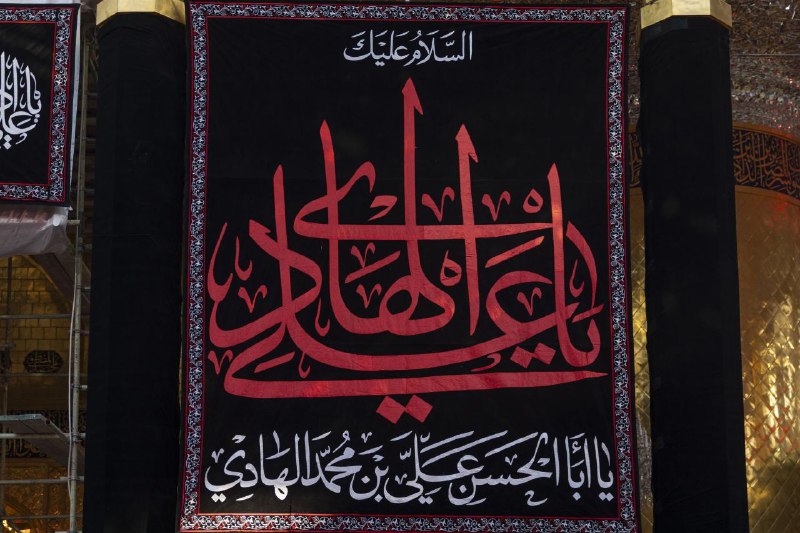 السَّلَامُ عَلَيْكَ
يا علي الهادي
يا أبا الحَسَنِ عَلِيَّ بْنَ مُحَمَّدٍ الهَادِي